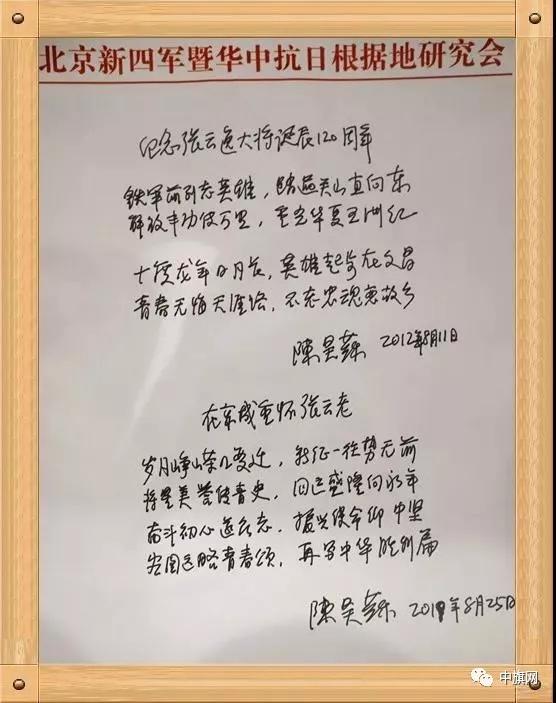 北京新四军暨华中抗日根据地研究会
纪念张云逸大将诞辰120周年
铁军前列志英雄，踏遍关山直向东
解放丰功传万里，重光华夏五洲红
十度龙年日月长，英雄起步在文昌
青春无悔天涯路，不忘忠魂惠故乡
陈昊苏 2012年8月11日
在京成重怀张云老
岁月峥嵘几变迁，长征一往势无前
将星美誉传青史，回运盛隆向永年
奋斗初心遂长志，振兴使命仰中坚
宏图大略青春颂，再写中华胜利篇
陈昊苏 2019年8月25日
中旗网